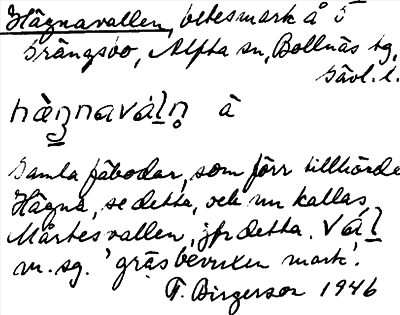 Hägnavallen, betesmark å
Grängsbo, Alfta sn, Bollnäs tg,
Gävl. l.
hàŋnavál̠n̥ à
Gamla fäbodar, som förr tillhörde
Hägna, se detta, och nu kallas
Mårtesvallen, jfr detta. vál̠
m. sg. 'gräsbevuxen mark'.
T. Birgerson 1946